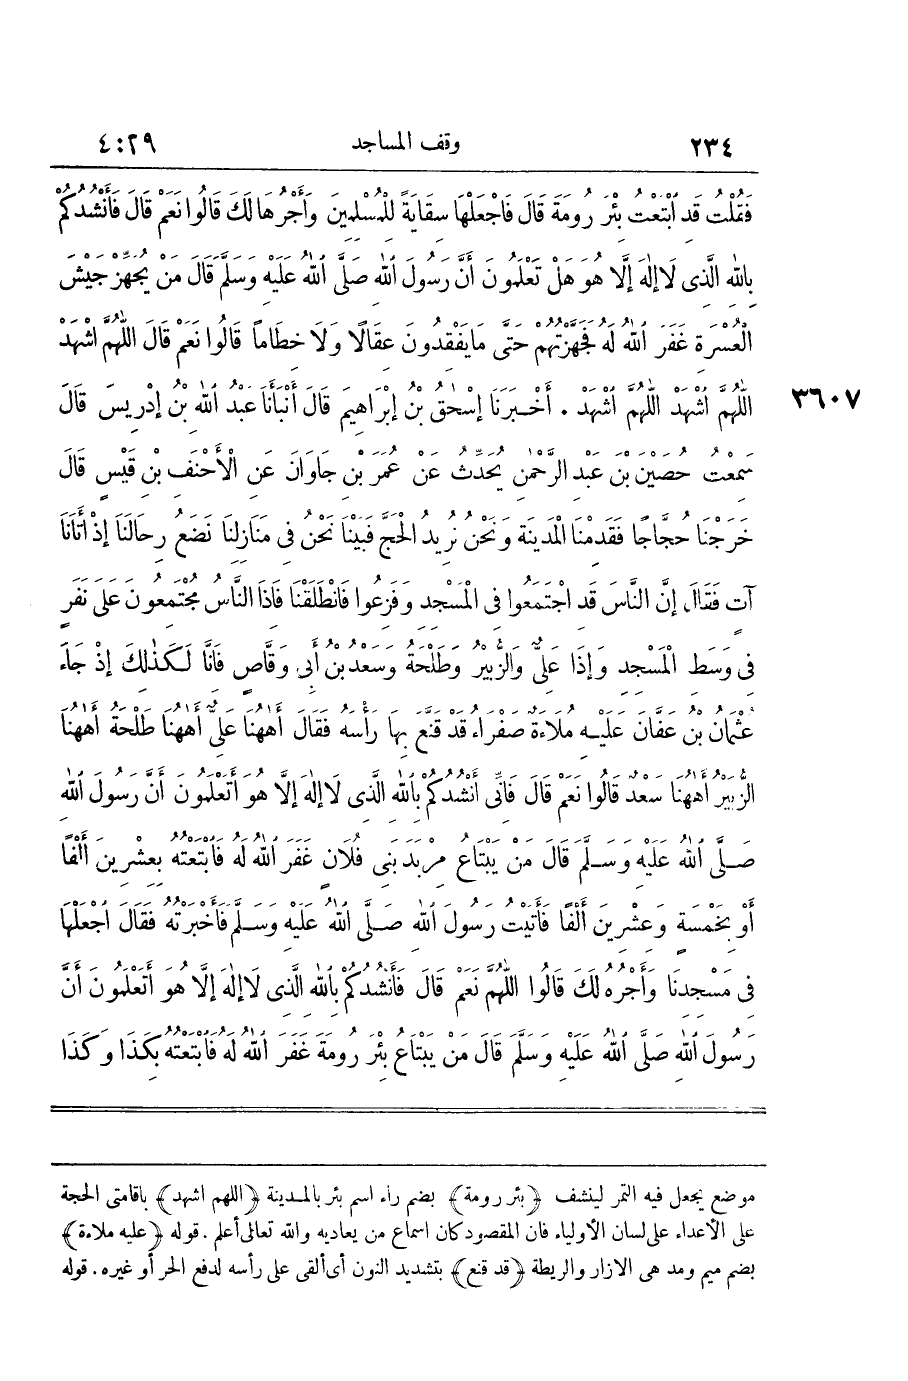 ٢٣٤ وقف المساجد ٤:٢٩
فَقُلْتُ قَدِ ابْتَعْتُ بِئْرَ رُومَةَ قَالَ فَاجْعَلْهَا سِقَايَةً لِلْمُسْلِمِينَ وَأَجْرُهَا لَكَ قَالُوا نَعَمْ قَالَ فَأَنْشُدُكُمْ
بِاللهِ الَّذِى لَا إِلٰهَ إِلَّا هُوَ هَلْ تَعْلَمُونَ أَنَّ رَسُولَ اللهِ صَلَّى اللهُ عَلَيْهِ وَسَلَّمَ قَالَ مَنْ يُجَهِّزُ جَيْشَ
الْعُسْرَةِ غَفَرَ اللهُ لَهُ فَجَهَّزْتُهُمْ حَتَّى مَا يَفْقِدُونَ عِقَالًا وَلَا خِطَامًا قَالُوا نَعَمْ قَالَ اللّٰهُمَّ اشْهَدْ
اللّٰهُمَّ اشْهَدْ اللّٰهُمَّ اشْهَدْ . أَخْبَرَنَا إِسْحٰقُ بْنُ إِبْرَاهِيمَ قَالَ أَنْبَأَنَا عَبْدُ اللهِ بْنُ إِدْرِيسَ قَالَ
٣٦٠٧
سَمِعْتُ حُصَيْنَ بْنَ عَبْدِ الرَّحْمٰنِ يُحَدِّثُ عَنْ عُمَرَ بْنِ جَاوَانَ عَنِ الْأَحْنَفِ بْنِ قَيْسٍ قَالَ
خَرَجْنَا حُجَّاجًا فَقَدِمْنَا الْمَدِينَةَ وَنَحْنُ نُرِيدُ الْحَجَّ فَبَيْنَا نَحْنُ فِى مَنَازِلِنَا نَضَعُ رِحَالَنَا إِذْ أَتَانَا
آتٍ فَقَالَ إِنَّ النَّاسَ قَدِ اجْتَمَعُوا فِى الْمَسْجِدِ وَفَزِعُوا فَانْطَلَقْنَا فَإِذَا النَّاسُ مُجْتَمِعُونَ عَلَى نَفَرٍ
فِى وَسَطِ الْمَسْجِدِ وَإِذَا عَلِىٌّ وَالزُّبَيْرُ وَطَلْحَةُ وَسَعْدُ بْنُ أَبِى وَقَّاصٍ فَإِنَّا لَكَذٰلِكَ إِذْ جَاءَ
عُثْمَانُ بْنُ عَفَّانَ عَلَيْهِ مُلَاءَةٌ صَفْرَاءُ قَدْ قَنَّعَ بِهَا رَأْسَهُ فَقَالَ أَهٰهُنَا عَلِىٌّ أَهٰهُنَا طَلْحَةُ أَهٰهُنَا
الزُّبَيْرُ أَهٰهُنَا سَعْدٌ قَالُوا نَعَمْ قَالَ فَإِنِّى أَنْشُدُكُمْ بِاللهِ الَّذِى لَا إِلٰهَ إِلَّا هُوَ أَتَعْلَمُونَ أَنَّ رَسُولَ اللهِ
صَلَّى اللهُ عَلَيْهِ وَسَلَّمَ قَالَ مَنْ يَبْتَاعُ مِرْبَدَ بَنِى فُلَانٍ غَفَرَ اللهُ لَهُ فَابْتَعْتُهُ بِعِشْرِينَ أَلْفًا
أَوْ بِخَمْسَةٍ وَعِشْرِينَ أَلْفًا فَأَتَيْتُ رَسُولَ اللهِ صَلَّى اللهُ عَلَيْهِ وَسَلَّمَ فَأَخْبَرْتُهُ فَقَالَ اجْعَلْهَا
فِى مَسْجِدِنَا وَأَجْرُهُ لَكَ قَالُوا اللّٰهُمَّ نَعَمْ قَالَ فَأَنْشُدُكُمْ بِاللهِ الَّذِى لَا إِلٰهَ إِلَّا هُوَ أَتَعْلَمُونَ أَنَّ
رَسُولَ اللهِ صَلَّى اللهُ عَلَيْهِ وَسَلَّمَ قَالَ مَنْ يَبْتَاعُ بِئْرَ رُومَةَ غَفَرَ اللهُ لَهُ فَابْتَعْتُهُ بِكَذَا وَكَذَا
موضع يجعل فيه التمر لينشف ﴿بئر رومة﴾ بضم راء اسم بئر بالمدينة ﴿اللهم اشهد﴾ باقامتى الحجة
على الأعداء على لسان الأولياء فان المقصود كان اسماع من يعاديه والله تعالى أعلم . قوله ﴿عليه ملاءة﴾
بضم ميم ومد هى الازار والريطة ﴿قد قنع﴾ بتشديد النون أى ألقى على رأسه لدفع الحر أو غيره . قوله